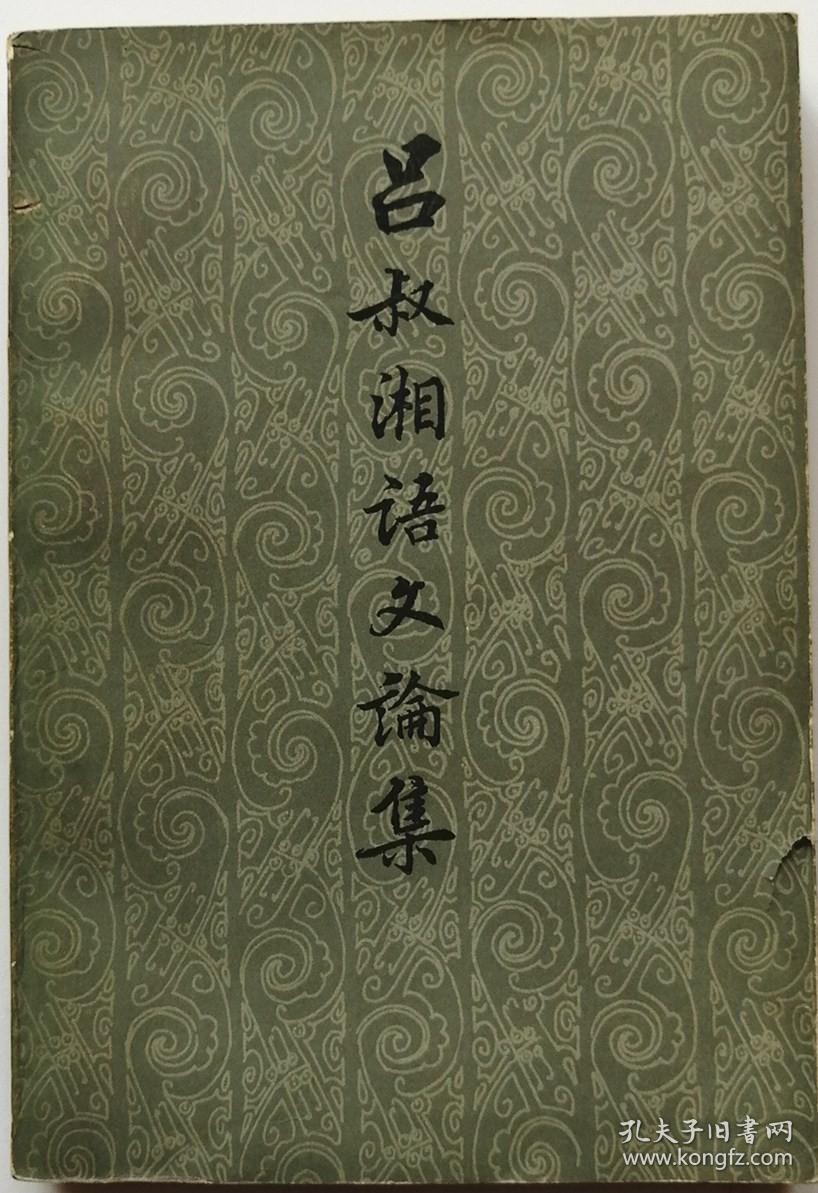 吕叔湘语文論集
孔夫子旧書网
www.kongfz.com